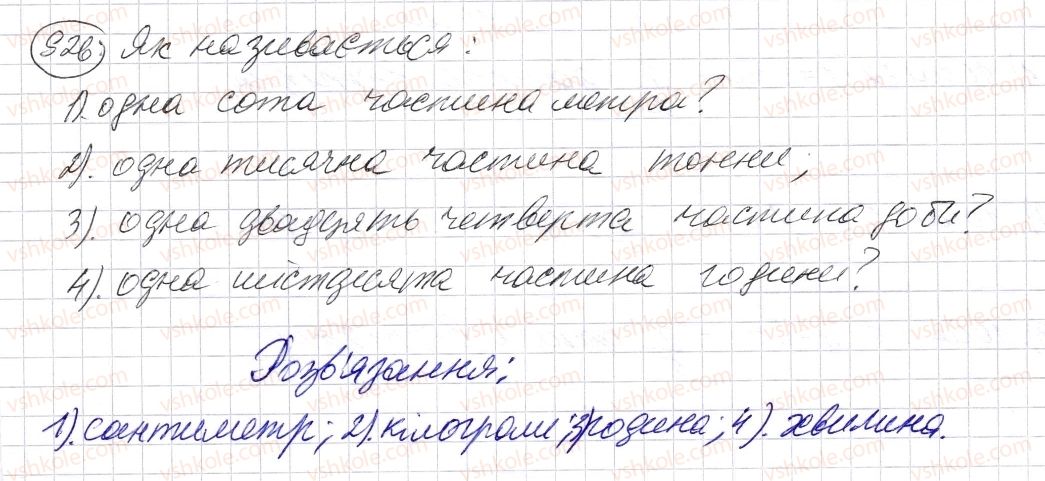 926. Як називається:
1). одна сота частина метра?
2). одна тисячна частина тонни;
3). одна двадцять четверта частина доби?
4). одна шістдесята частина години?
Розв'язання:
1). сантиметр; 2). кілограм; 3) година; 4). хвилина.